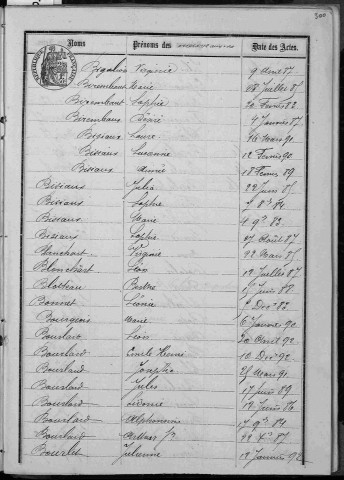 300
Noms Prénoms des Date des Actes.
RÉPUBLIQUE FRANÇAISE
Bigalion Virginie 9 Avril 87
Birembaut Marie 28 Juillet 85
Birembaut Sophie 20 Février 82
Birembaux Désiré 4 Janvier 87
Bisiaux Laure 16 Mars 91
Bisiaux Suzanne 12 Février 90
Bisiaux Aimée 18 Février 89
Bisiaux Julia 22 Juin 85
Bisiaux Sophie 84
Bisiaux Marie 4 9bre 83
Bisiaux Sophie 27 Août 87
Blanchart Virginie 22 Mars 85
Blanchart Léon 12 Juillet 87
Blotteau Berthe 15 Juin 88
Bonnet Léonie Xbre 83
Bourgeois Marie 6 Janvier 90
Bourlard Léon 20 Avril 92
Bourlard Emile Henri 10 Xbre 92
Bourlard Josephe 25 Mars 91
Bourlard Jules 17 Juin 89
Bourlard Léonie 12 Juin 86
Bourlard Alphonsine 17 9bre 84
Bourlard 22 Xbre 87
Bourlet Julienne 12 Janvier 92